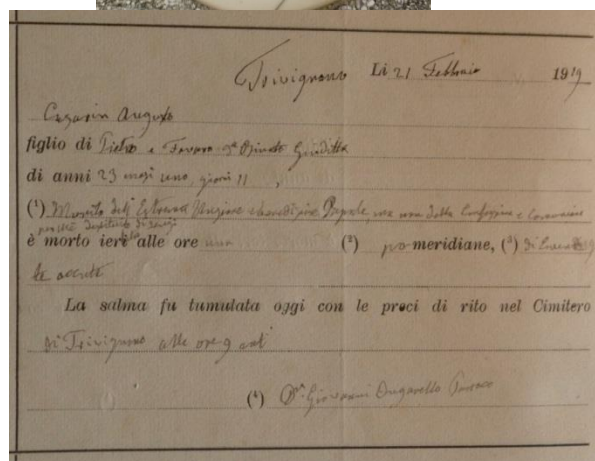 Trivignano Li 21 Febbraio 1919
Augusto
figlio di Pietro e Favaro Giuditta
di anni 23 mesi uno, giorni 11
(¹) Munito dell'Estrema Unzione e benedizione Papale, ma non della Confessione e Comunione
è morto ieri alle ore una (²) pomeridiane, (³) di
te acuta
La salma fu tumulata oggi con le preci di rito nel Cimitero
di Trivignano alle ore 9 ant
(⁴) Dⁿ Giovanni Parroco